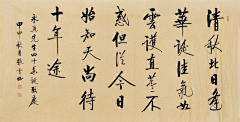 清秋此日逢
華誕佳氣如
雲護直不
惑但從今日
始知天尚待
十年途
先生四十華誕致慶
甲申秋月